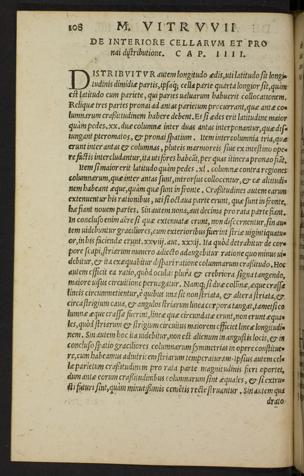 108 M. VITRVVII
DE INTERIORE CELLARVM ET PRO
nai distributione. CAP. IIII.
DISTRIBVITVR autem longitudo ædis, uti latitudo sit longi-
tudinis dimidiæ partis, ipsaq; cella parte quarta longior sit, quàm
est latitudo cum pariete, qui paries ualuarum habuerit collocationem.
Reliquæ tres partes pronai ad antas parietum procurrant, quæ antæ co-
lumnarum crassitudinem habere debent. Et si ædes erit latitudine maior
quàm pedes .xx. duæ columnæ inter duas antas interponantur, quæ dis-
iungant pteromatos, & pronai spatium. Item intercolumnia tria, quæ
erunt inter antas & columnas, pluteis marmoreis siue ex intestino ope-
re factis intercludantur, ita uti fores habeãt, per quas itinera pronao fiãt.
Item si maior erit latitudo quàm pedes .xl. columnæ contra regiones
columnarum, quæ inter antas sunt, introrsus collocentur, & eæ altitudi-
nem habeant æque, quàm quæ sunt in fronte. Crassitudines autem earum
extenuentur his rationibus, uti si octaua parte erunt, quæ sunt in fronte,
hæ fiant nouem partes. Sin autem nona, aut decima pro rata parte fiant.
In concluso enim aëre si quæ extenuatæ erunt, non discernentur, sin au-
tem uidebuntur graciliores, cum exterioribus fuerint striæ uigintiquatu-
or, in his faciendæ erunt .xxviij. aut .xxxij. Ita quod detrahitur de cor-
pore scapi, striarum numero adiecto adaugebitur ratione quo minus ui-
debitur, & ita exæquabitur dispari ratione columnarum crassitudo. Hoc
autem efficit ea ratio, quòd oculus plura & crebriora signa tangendo,
maiore uisus circuitione peruagatur. Namq; si duæ colũnæ, æque crassæ
lineis circunmetientur, è quibus una sit non striata, & altera striata, &
circa strigium caua, & angulos striarum linea corpora tangat, tametsi co
lumnæ æque crassæ fuerint, lineæ quæ circundatæ erunt, non erunt æqua-
les, quòd striarum & strigium circuitus maiorem efficiet lineæ longitudi-
nem. Sin autem hoc ita uidebitur, non est alienum in angustis locis, & in
concluso spatio graciliores columnarum symmetrias in opere constitue-
re, cum habeamus adiutricem striarum temperaturam. Ipsius autem cel-
læ parietum crassitudinem pro rata parte magnitudinis fieri oportet,
dum antæ eorum crassitudinibus columnarum sint æquales, & si extru-
cti futuri sint, quàm minutissimis cæmẽtis recte struantur. Sin autem qua
drato